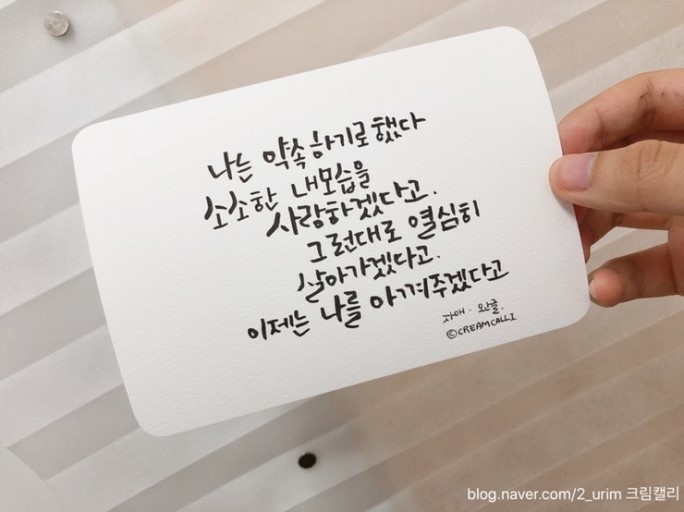 나는 약속하기로 했다
소소한 내모습을
사랑하겠다고.
그런대로 열심히
살아가겠다고.
이제는 나를 아껴주겠다고
자애. 완글.
©CREAMCALLI
blog.naver.com/2_urim 크림캘리